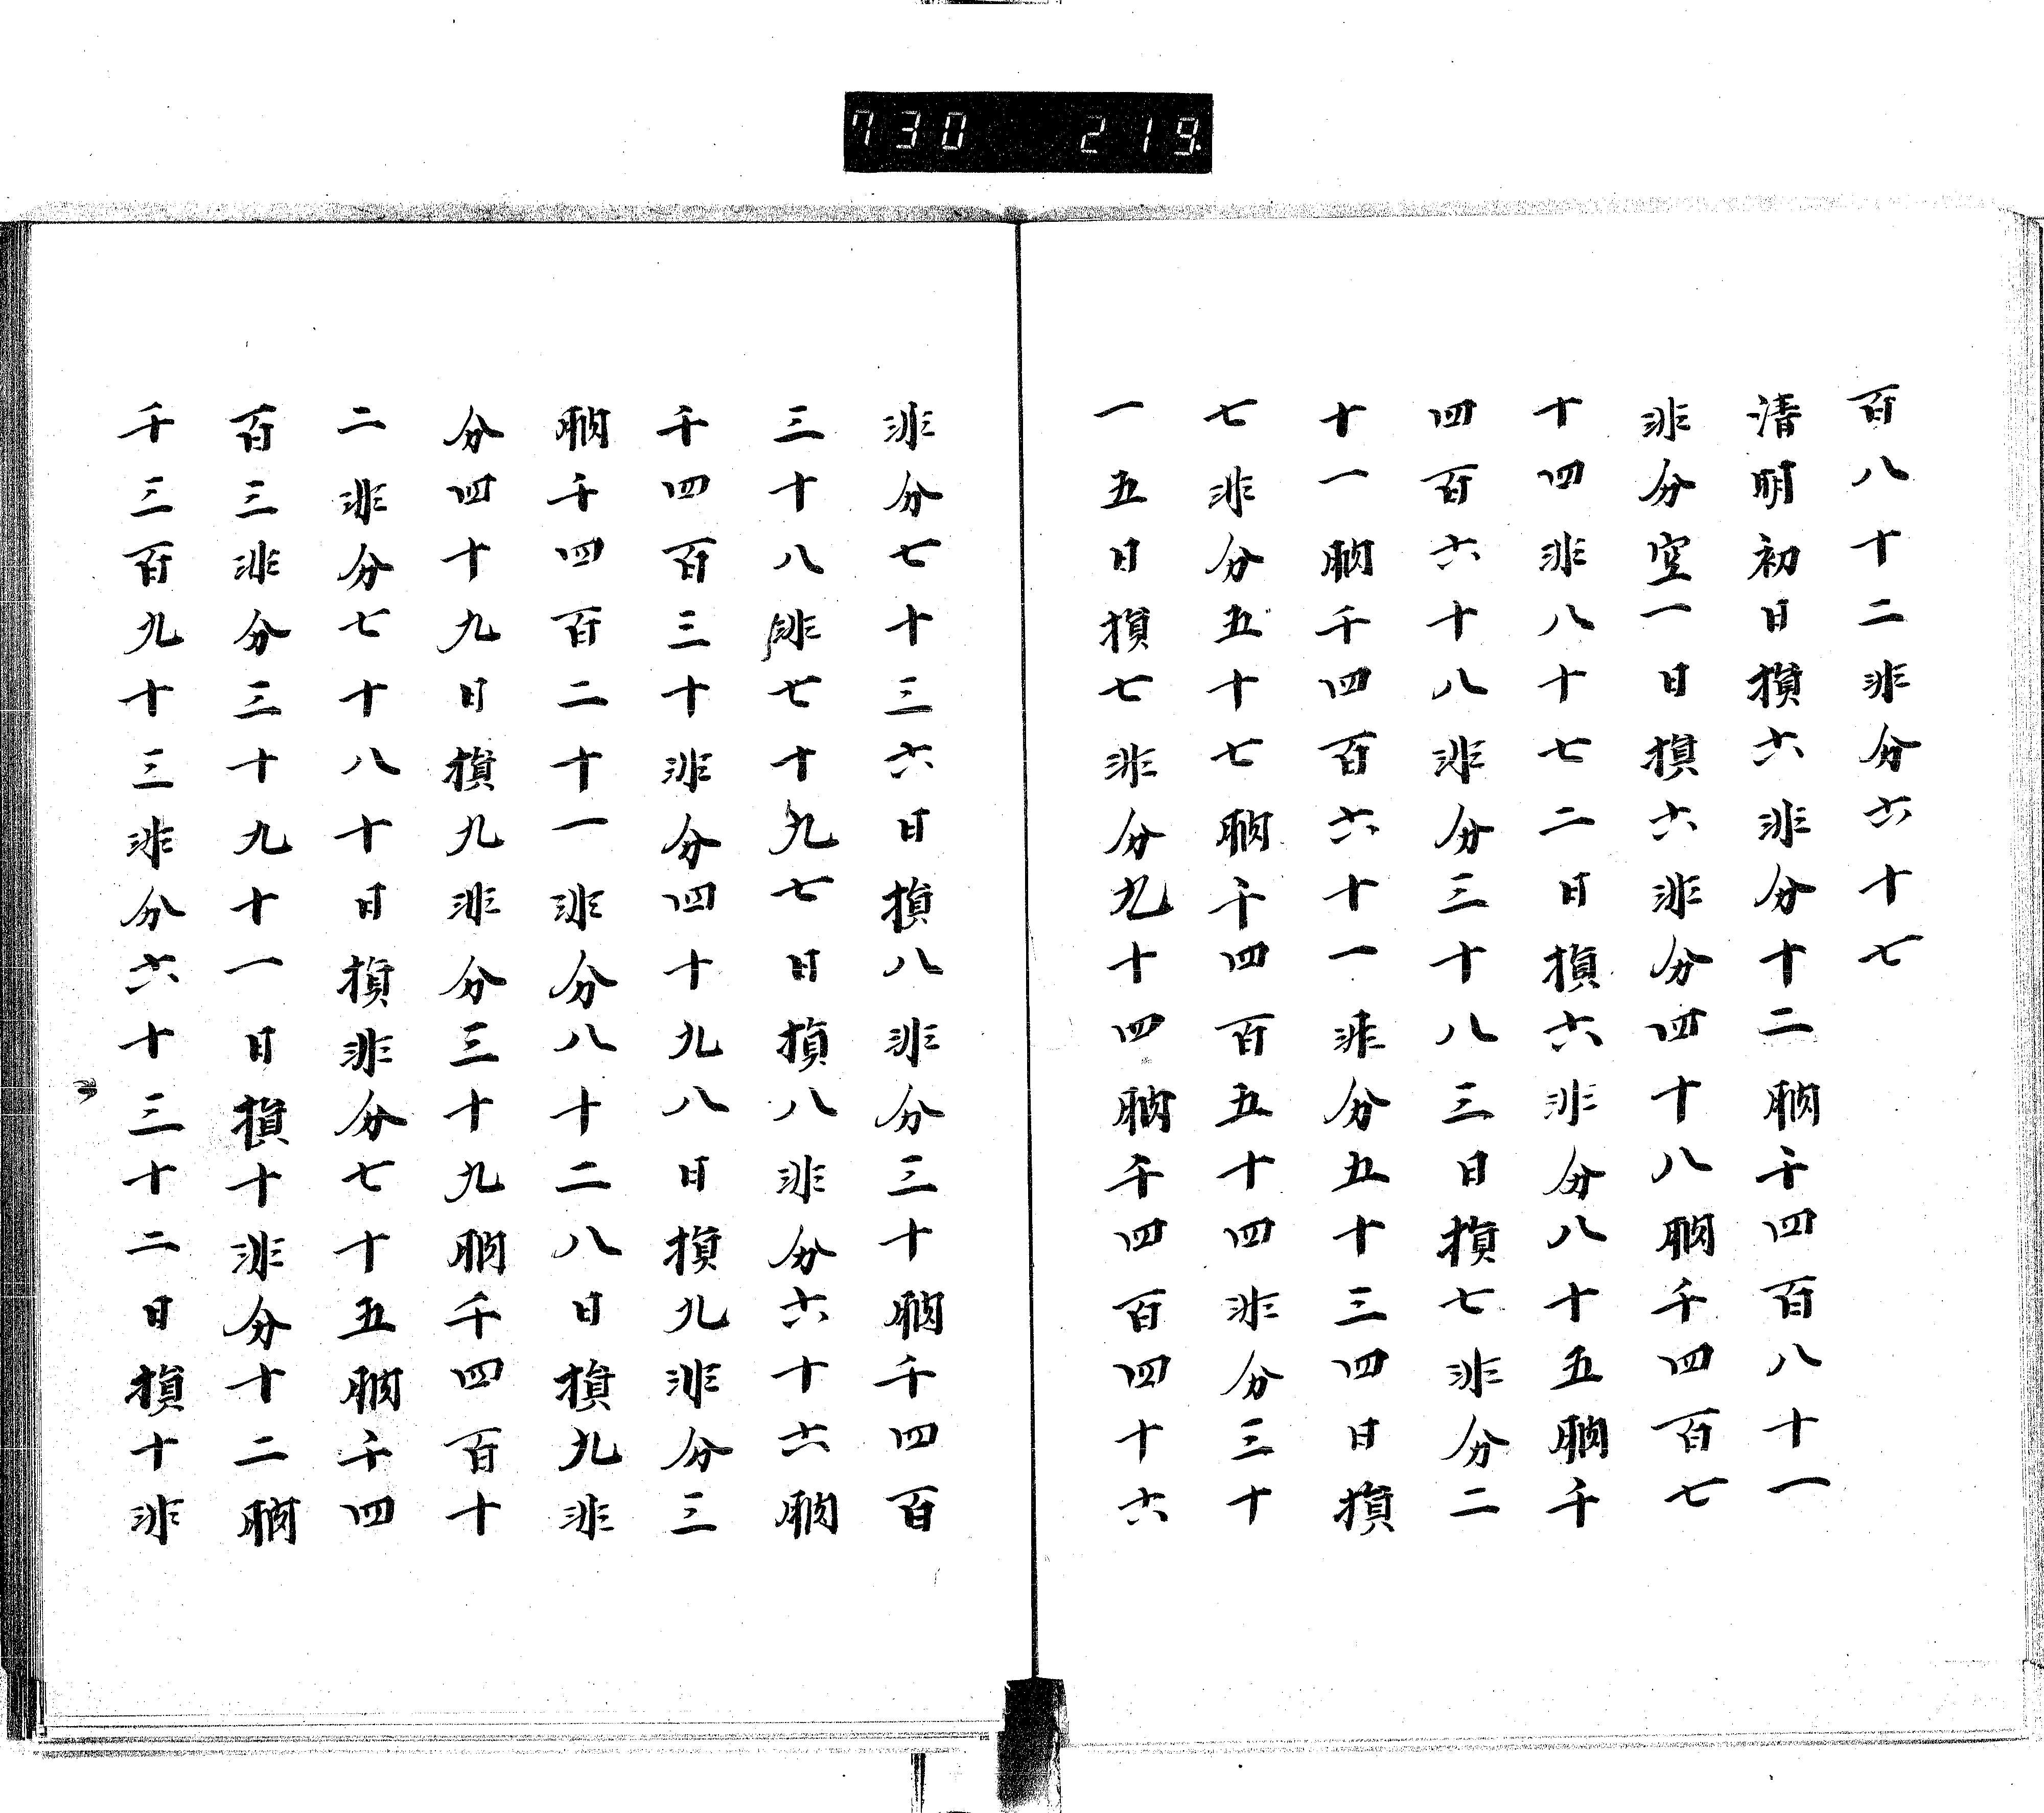 730 219
百八十二非分六十七
清明初日損六非分十二朒千四百八十一
非分空一日損六非分四十八朒千四百七
十四非八十七二日損六非分八十五朒千
四百六十八非分三十八三日損七非分二
十一朒千四百六十一非分五十三四日損
七非分五十七朒千四百五十四非分三十
一五日損七非分九十四朒千四百四十六
非分七十三六日損八非分三十朒千四百
三十八非七十九七日損八非分六十六朒
千四百三十非分四十九八日損九非分三
朒千四百二十一非分八十二八日損九非
分四十九日損九非分三十九朒千四百十
二非分七十八十日損非分七十五朒千四
百三非分三十九十一日損十非分十二朒
千三百九十三非分六十三十二日損十非